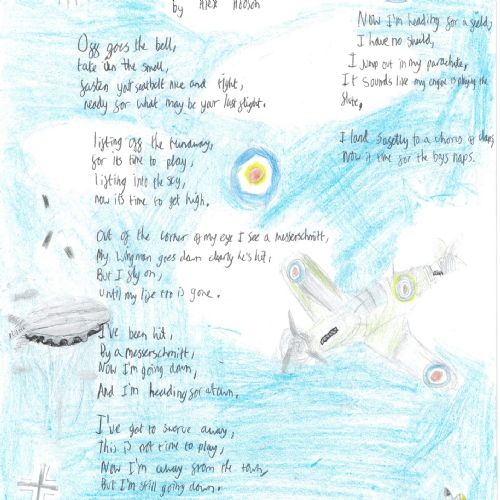 by Alex Hobson
Ogg goes the bell,
take in the smell,
fasten your seatbelt nice and tight,
ready for what may be your last flight.
lifting off the runaway,
for its time to play,
lifting into the sky,
now its time to get high.
Out of the corner of my eye I see a messerschmitt,
My wingman goes down clearly he's hit,
But I fly on,
until my life is gone.
I've been hit,
By a messerschmitt,
Now I'm going down,
And I'm heading for a town.
I've got to swerve away,
This is not time to play,
Now I'm away from the town,
But I'm still going down.
Now I'm heading for a field,
I have no shield,
I Jump out in my parachute,
It sounds like my engine is playing the
flute,
I land safetly to a chorus of claps,
Now it time for the boys naps.